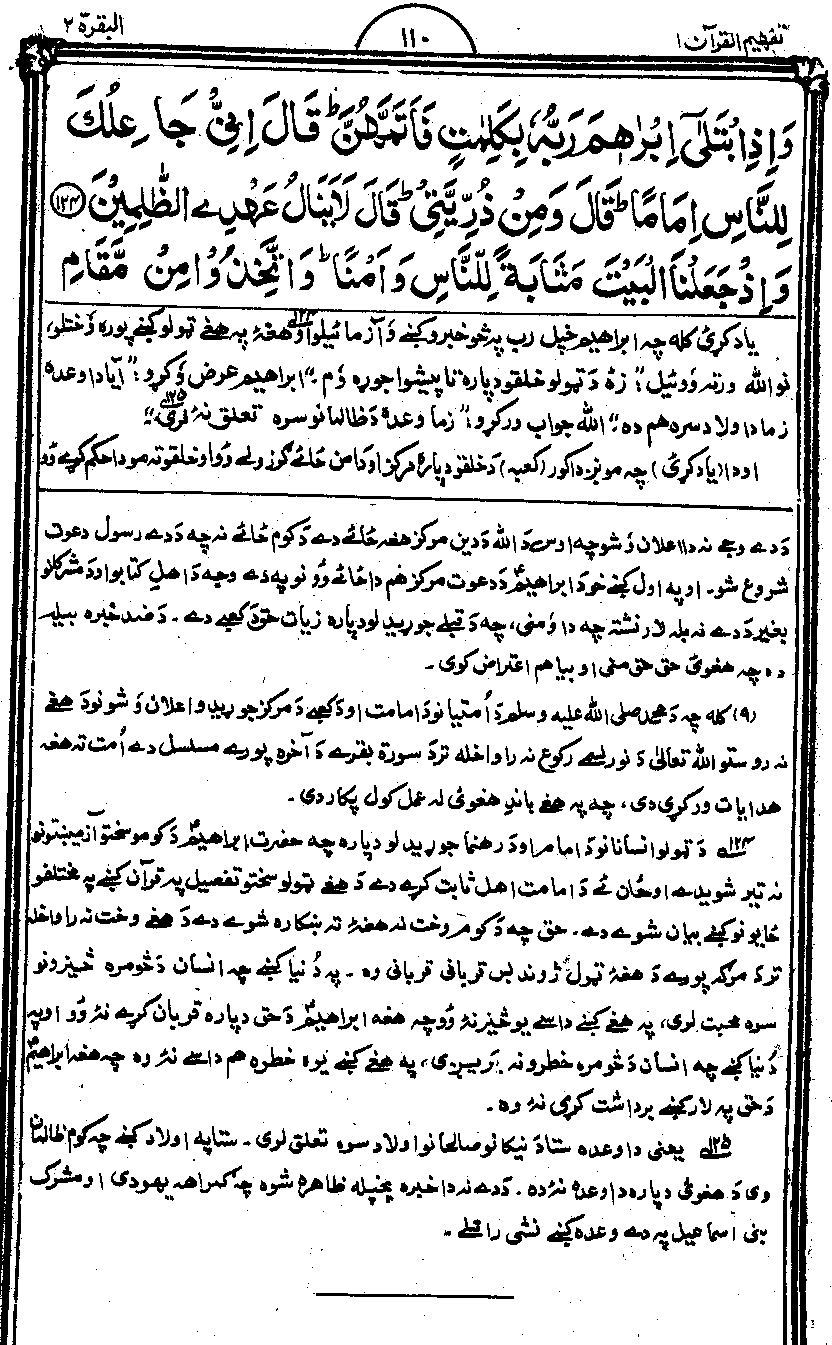 تفهیم القرآن ۱
۱۱۰
البقرة ۲
وَاِذِ ابْتَلٰٓى اِبْرٰهٖمَ رَبُّهٗ بِكَلِمٰتٍ فَاَتَمَّهُنَّ ؕ قَالَ اِنِّىْ جَاعِلُكَ
لِلنَّاسِ اِمَامًا ؕ قَالَ وَمِنْ ذُرِّيَّتِىْ ؕ قَالَ لَا يَنَالُ عَهْدِى الظّٰلِمِيْنَ ۱۲۴
وَاِذْ جَعَلْنَا الْبَيْتَ مَثَابَةً لِّلنَّاسِ وَاَمْنًا ؕ وَاتَّخِذُوْا مِنْ مَّقَامِ
یاد کړئ کله چه ابراهیم خپل رب په څو خبرو کښے دَ آزمائیلو ۱۲۴ او هغهٔ په هغے ټولو کښے پوره وَختلو،
نو الله ورته وَوئیل: "زهٔ دَ ټولو خلقو دپاره تا پیشوا جوړه وَم۔" ابراهیم عرض وَکړو: "آیا دا وعده
زما دا ولاد سره هم ده۔" الله جواب ورکړو: "زما وعده دَ ظالمانو سره تعلق نهٔ لری ۱۲۵۔"
او دا (یاد کړئ) چه مونږ دا کور (کعبه) دَ خلقو دپاره مرکز او دامن ځائے ګرزولے وَو او خلقو ته مو دا حکم کړے وَو
دَدے وجے نه دا اعلان وَشو چه اوس دَ الله دَدین مرکز هغه ځائے دے دَکوم ځائے نه چه دَدے رسول دعوت
شروع شو۔ او په اول کښے خو دَ ابراهیمؑ دَ دعوت مرکز هم دا ځائے وَو نو په دے وجه دَ اهلِ کتابو او دَ مشرکانو
بغیر دَدے نه بله لار نشته چه دا وَمنی، چه دَ قبلے جوړیدلو دپاره زیات حق دَ کعبے دے۔ دَ ضد خبره بیله
ده چه هغوئ حق حق منی او بیا هم اعتراض کوی۔
(۹) کله چه دَ محمد صلی الله علیه وسلم دَ اُمتیانو دَ امامت او دَ کعبے دَ مرکز جوړیدو اعلان وَشو نو دَ هغے
نه روستو الله تعالٰی دَ نورلسمے رکوع نه را واخله تر دَ سورة بقرے دَ آخره پورے مسلسل دے اُمت ته هغه
هدایات ورکړی دی، چه په هغے باندِ هغوئی له عمل کول پکار دی۔
۱۲۴ دَ ټولو انسانانو دَ امام او دَ رهنما جوړیدلو دپاره چه حضرت ابراهیمؑ دَکومو سختو آزمیښتونو
نه تیر شویدے او ځان ئے دَ امامت اهل ثابت کړے دے دَ هغے ټولو سختو تفصیل په قرآن کښے په مختلفو
ځایونو کښے بیان شوے دے۔ حق چه دَ کوم وخت نه هغهٔ ته ښکاره شوے دے دَ هغے وخت نه را واخله
تر دَ مرګه پورے دَ هغهٔ ټول ژوند بس قربانی قربانی وه۔ په دُنیا کښے چه انسان دَ څومره څیزونو
سره محبت لری، په هغے کښے داسے یو څیز نهٔ وُو چه هغه ابراهیمؑ دَ حق دپاره قربان کړے نهٔ وُو او په
دُنیا کښے چه انسان دَ څومره خطرو نه یریږی، په هغے کښے یوه خطره هم داسے نهٔ وه چه هغه ابراهیمؑ
دَ حق په لار کښے برداشت کړی نهٔ وه۔
۱۲۵ یعنی دا وعده ستا دَ نیکانو صالحانو اولاد سره تعلق لری۔ ستا په اولاد کښے چه کوم ظالمان
وی دَ هغوئی دپاره دا وعده نهٔ ده۔ دَدے نه دا خبره پخپله ظاهره شوه چه ګمراهه یهودی او مشرک
بنی اسماعیل په دے وعده کښے نشی راتلے۔